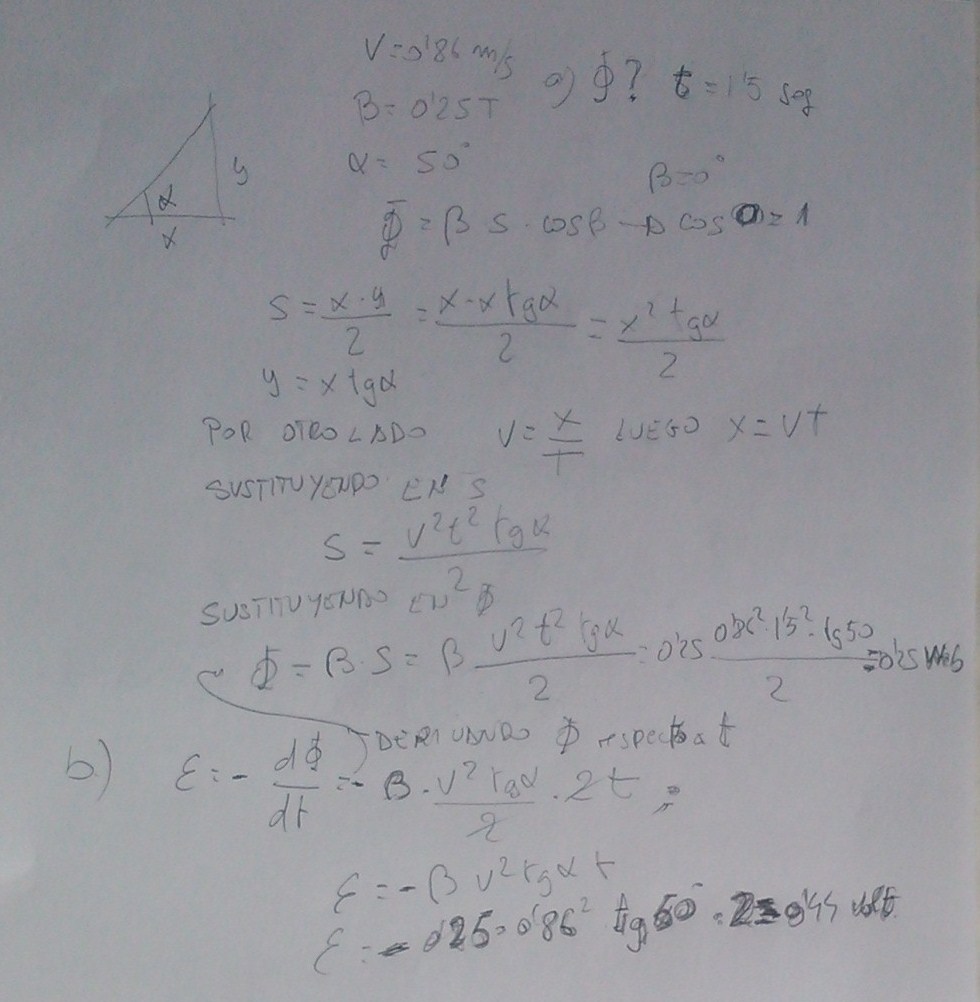 V=0'86 m/s a) ϕ? t=1'5 seg
B= 0'25T
α= 50°
y
α
x
β=0°
Φ = B S · cosβ → cos 0 = 1
S = x·y/2 = x·x tgα/2 = x² tgα/2
y = x tgα
POR OTRO LADO V= x/T LUEGO X=VT
SUSTITUYENDO EN S
S = V²t² tgα/2
SUSTITUYENDO EN ϕ
ϕ = B·S = B V²t² tgα/2 = 0'25 0'86²·1'5²·tg50/2 = 0'25 Web
DERIVANDO ϕ respecto a t
b) ε = - dϕ/dt = - B · V² tgα/2 · 2t ;
ε = - B V² tgα t
ε = - 0'25·0'86² tg50·2= 0'44 volt.